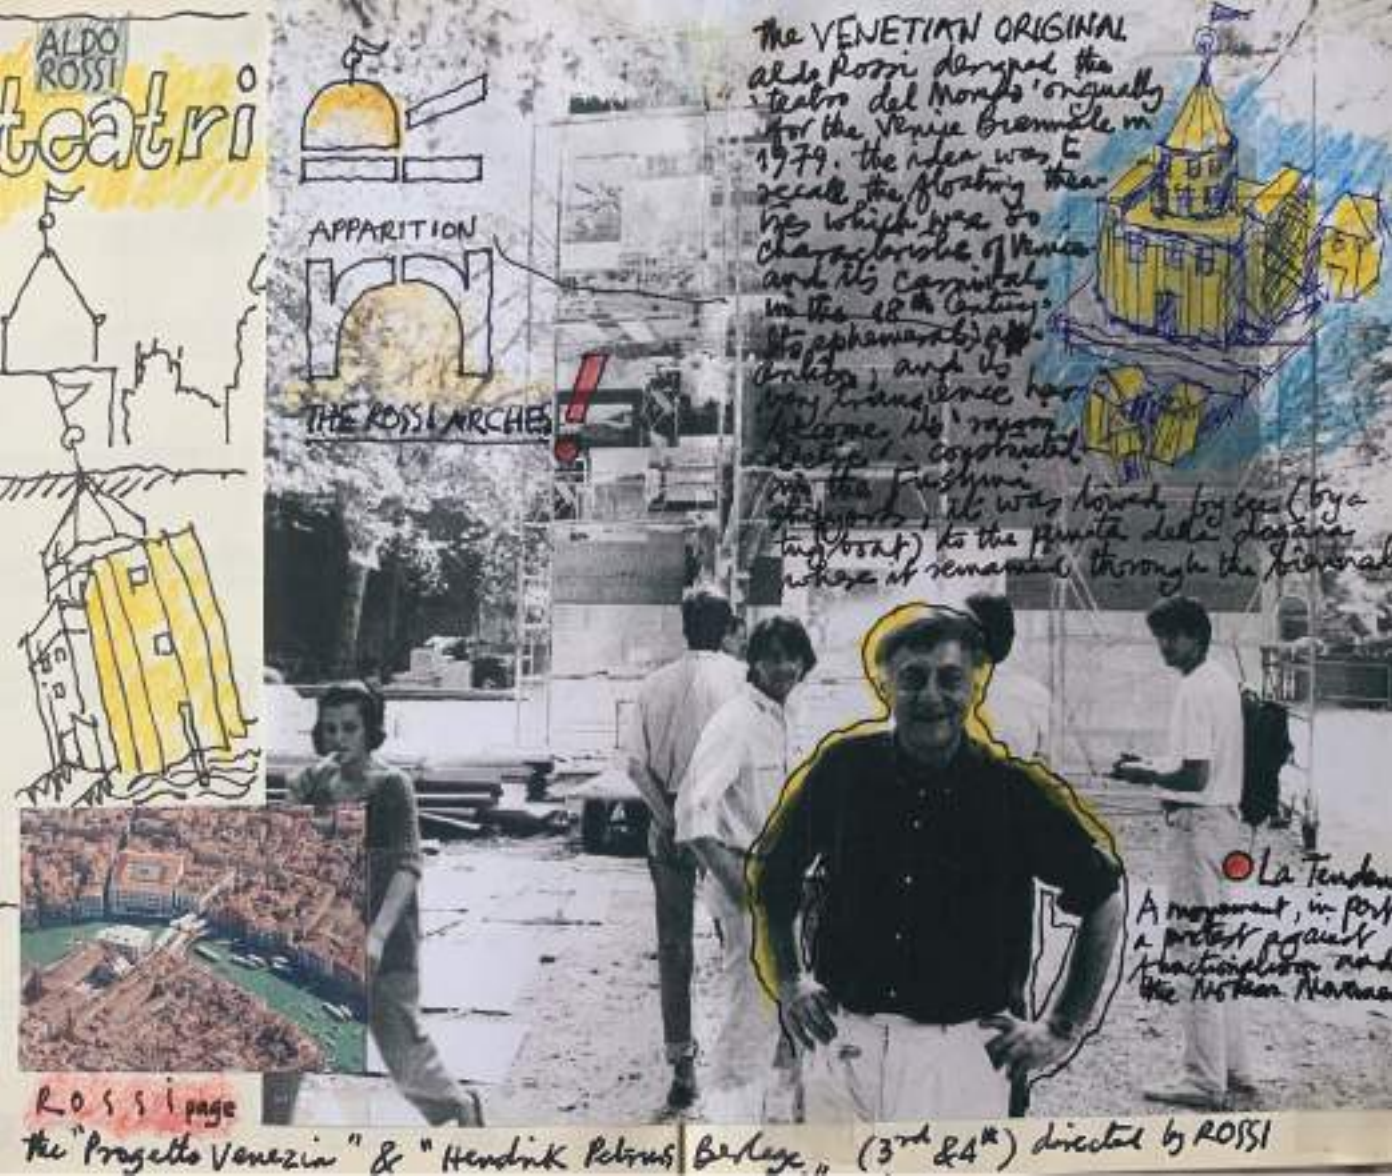 ALDO
ROSSI
teatri
APPARITION
THE ROSSI ARCHES
!
the VENETIAN ORIGINAL
aldo Rossi designed the
'teatro del Mondo' originally
for the Venice Biennale in
1979. the idea was to
recall the floating thea-
tres which were so
characteristic of Venice
and its carnivals
in the 18th Century.
Its ephemeral
and its
very transience has
become its 'raison
constructed
in the Fusina
shipyards, it was towed by sea (by a
tug boat) to the punta della dogana
where it remained through the biennale
La Tenden
A movement, in part
a protest against
functionalism and
the Modern Movemen
ROSSI page
the "Progetto Venezia" & "Hendrik Petrus Berlage" (3rd & 4th) directed by ROSSI